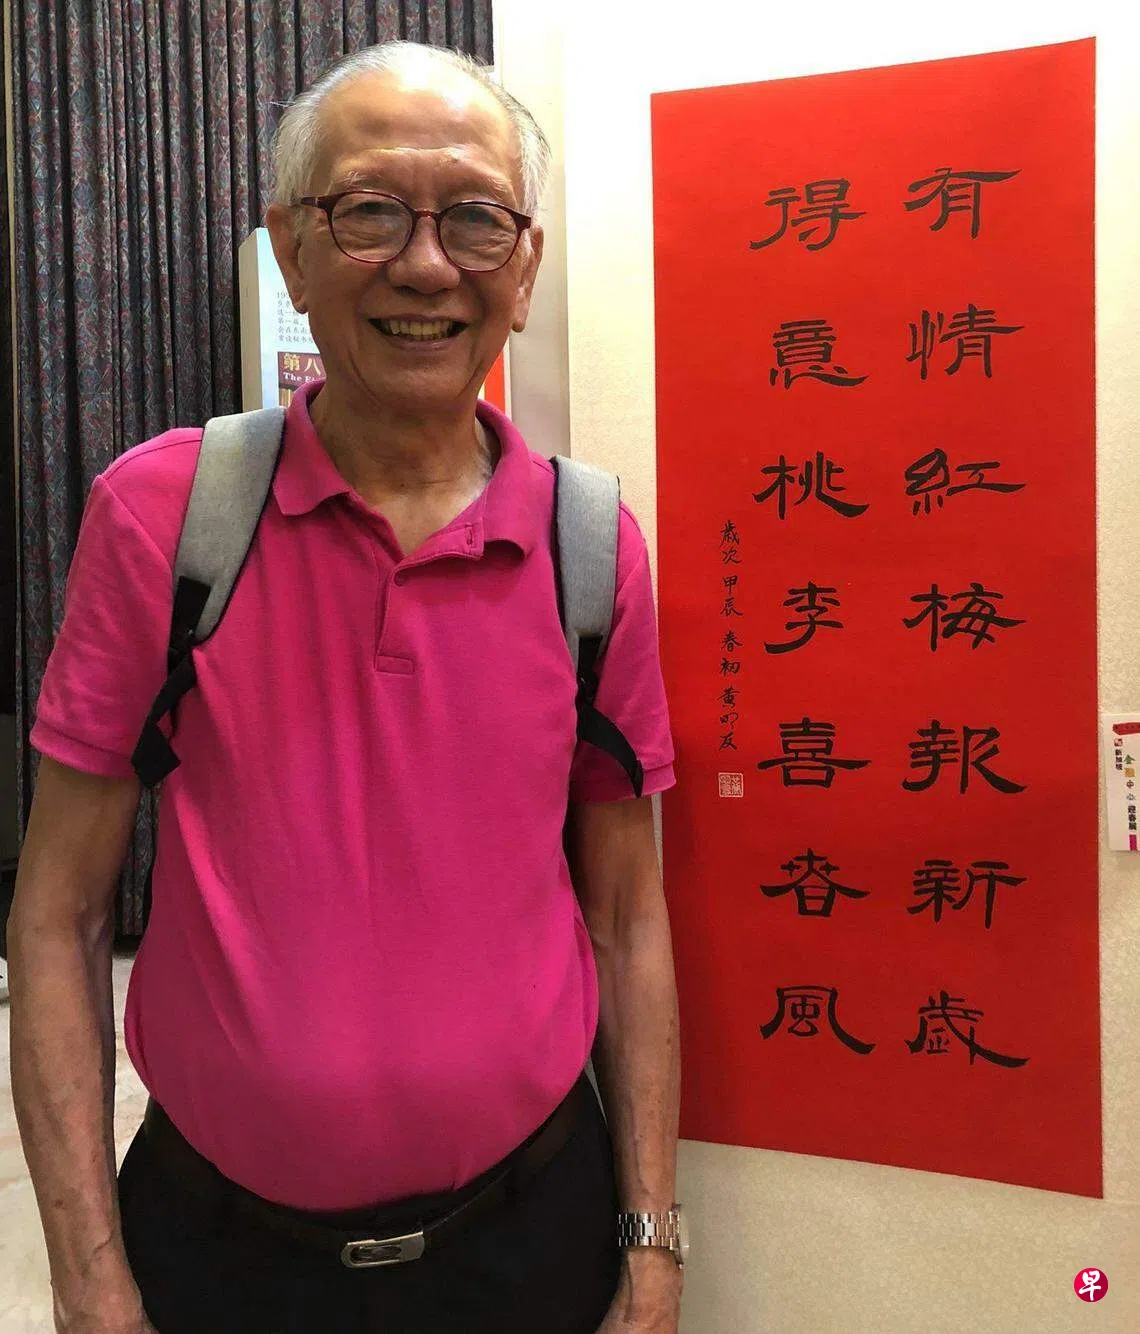 有情紅梅報新歲
得意桃李喜春風
歲次甲辰春初黄明友
第八
The Ei
新加坡
中心迎春展
早